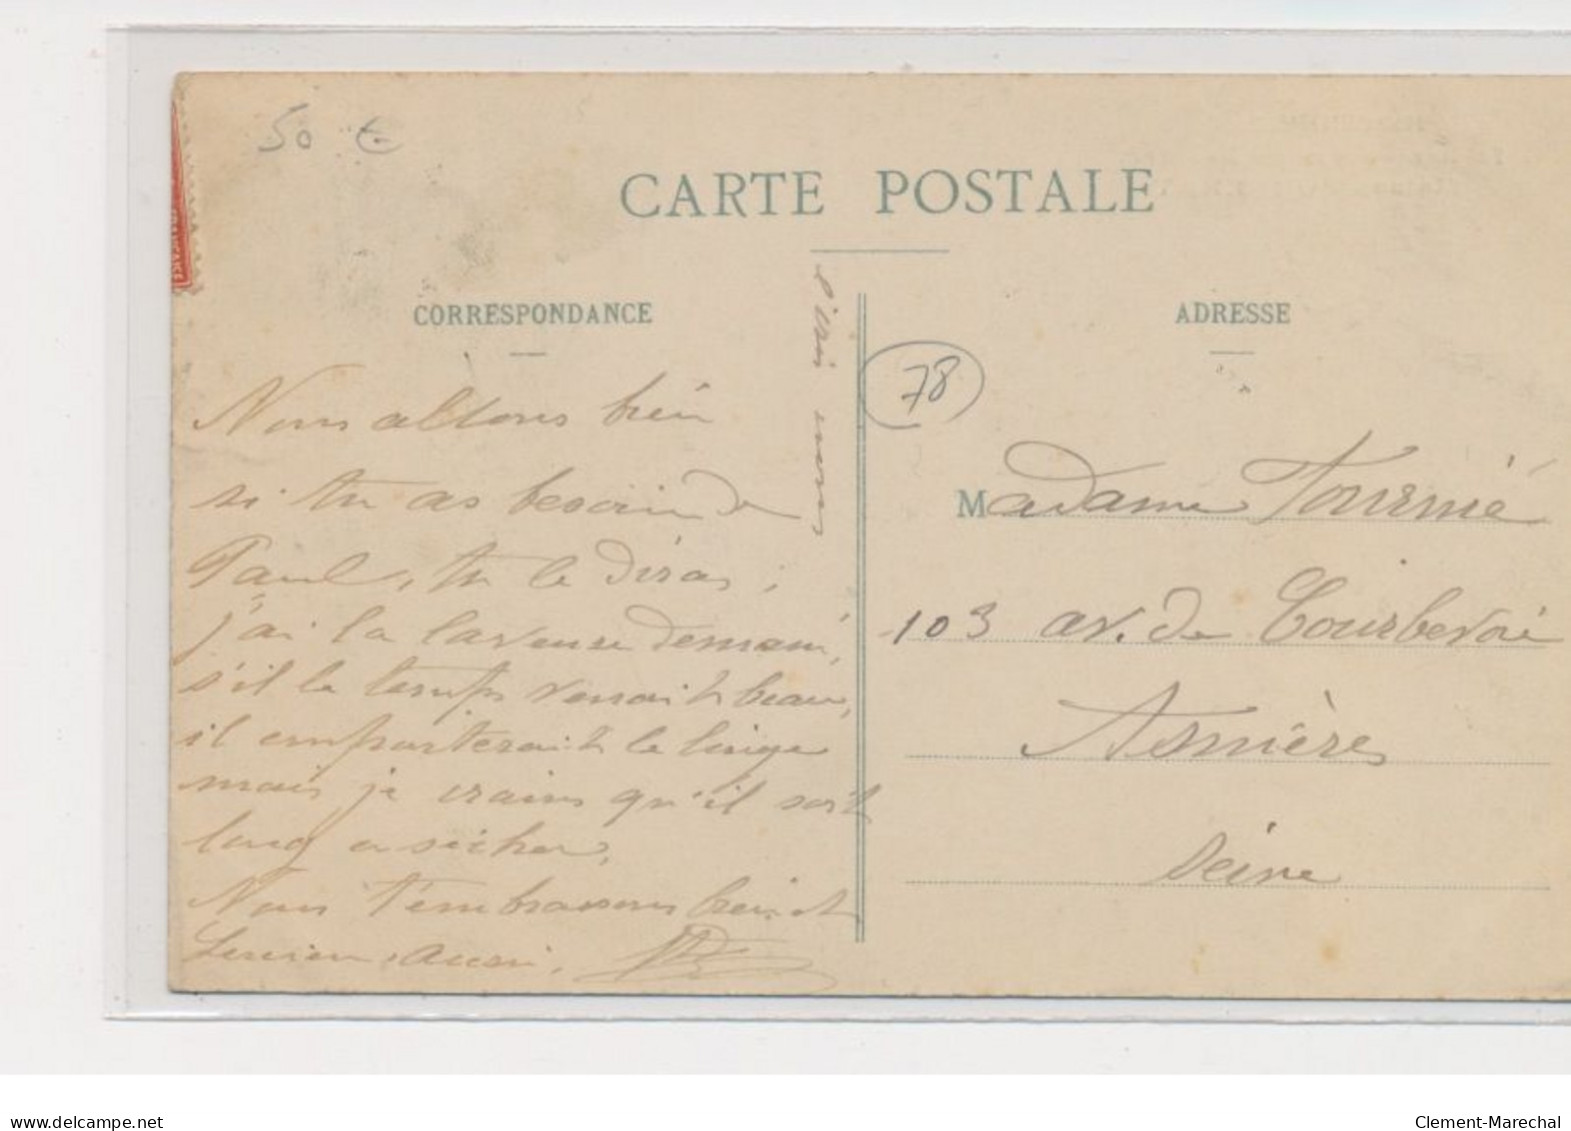 50 €
CARTE POSTALE
CORRESPONDANCE
ADRESSE
78
Nous allons bien
si tu as besoin de
Paul, tu le diras ;
j'ai la laveuse demain,
s'il le temps venait beau,
il emporterait le linge
mais je crains qu'il soit
long a sécher,
Nous t'embrassons bien et
Lucien aussi.
Madame Tournié
103 av. de Courbevoie
Asnières
Seine
www.delcampe.net
Clement-Marechal